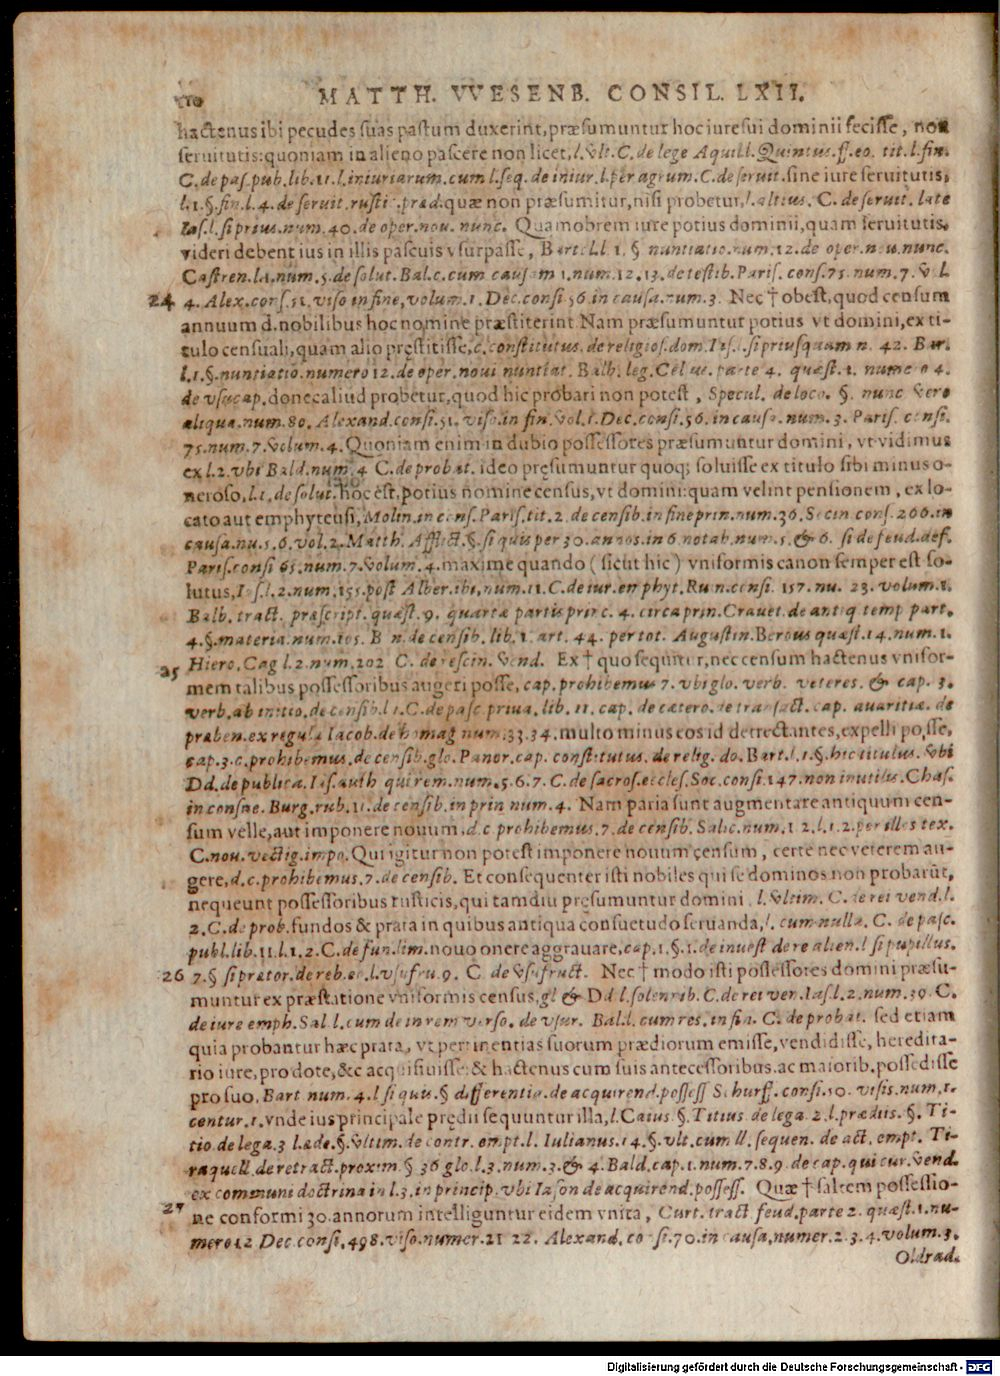 110 MATTH. VVESENB. CONSIL. LXII.
hactenus ibi pecudes suas pastum duxerint, præsumuntur hoc iure sui dominii fecisse, non
seruitutis: quoniam in alieno pascere non licet, l. vlt. C. de lege Aquill. Quintus. ff. eo. tit. l. fin.
C. de pas. pub. lib. 11. l. iniuriarum. cum l. seq. de iniur. l. per agrum. C. de seruit. sine iure seruitutis,
l. 1. §. fin. l. 4. de seruit. rusti. præd. quæ non præsumitur, nisi probetur, l. altius. C. de seruit. late
Ias. l. si prius. num. 40. de oper. nou. nunc. Quamobrem iure potius dominii, quam seruitutis.
videri debent ius in illis pascuis vsurpasse, Bart. l. 1. § nuntiatio. num. 12. de oper. nou. nunc.
Castren. l. 1. num. 5. de solut. Bal. c. cum causam 1. num. 12. 13. de testib. Paris. cons. 75. num. 7. Vol.
24 4. Alex. cons. 51. viso in fine, volum. 1. Dec. consi 56. in causa. num. 3. Nec † obest, quod censum
annuum d. nobilibus hoc nomine præstiterint. Nam præsumuntur potius vt domini, ex ti-
tulo censuali, quam alio pręstitisse, c. constitutus. de religios. dom. Ias. l. si priusquam n. 42. Bar.
l. 1. §. nuntiatio. numero 12. de oper. noui nuntiat. Balb. leg. Celsus. parte 4. quæst. 1. numero 4.
de vsucap. donec aliud probetur, quod hic probari non potest, Specul. de loca. §. nunc vero
aliqua. num. 80. Alexand. consi. 51. viso. in fin. Vol. 1. Dec. consi. 56. in causa. num. 3. Paris. consi.
75. num. 7. Volum. 4. Quoniam enim in dubio possessores præsumuntur domini, vt vidimus
ex l. 2. vbi Bald. num. 4 C. de probat. ideo pręsumuntur quoq; soluisse ex titulo sibi minus o-
neroso, l. 1. de solut. hoc est, potius nomine census, vt domini: quam velint pensionem, ex lo-
cato aut emphyteusi, Molin. in cons. Paris. tit. 2. de censib. in fine prin. num. 36. Socin cons. 266. in
causa. nu. 5. 6. vol. 2. Matth. Afflict. §. si quis per 30. annos. in 6. notab. num. 5. & 6. si de feud. def.
Paris. consi 65. num. 7. Volum. 4. maxime quando (sicut hic) vniformis canon semper est so-
lutus, Ias. l. 2. num. 155. post Alber. ibi, num. 11. C. de iur. emphyt. Ruin. consi. 157. nu. 23. volum. 1.
Balb. tract. præscript. quæst. 9. quartæ partis princ. 4. circa prin. Crauet. de antiq temp part.
4. §. materia. num. 105. B n. de censib. lib. 1. art. 44. per tot. Augustin. Berous quæst. 14. num. 1.
25 Hiero. Cag l. 2. num. 202 C. de rescin. Vend. Ex † quo sequitur, nec censum hactenus vnifor-
mem talibus possessoribus augeri posse, cap. prohibemus 7. vbi glo. verb. veteres. & cap. 3.
verb. ab initio, de censib. l 1. C. de pasc priua. lib. 11. cap. de cætero. de transact. cap. auaritiæ. de
præben. ex regula Iacob. de homag num. 33. 34. multo minus eos id detrectantes, expelli posse,
cap. 3. c. prohibemus. de censib. glo. Panor. cap. constitutus. de relig. do. Bart. l. 1. §. hic titulus. vbi
Dd. de publica. Ias. auth qui rem. num. 5. 6. 7. C. de sacros. eccles. Soc. consi. 147. non inutilis. Chas.
in consue. Burg. rub. 11. de censib. in prin num. 4. Nam paria sunt augmentare antiquum cen-
sum velle, aut imponere nouum, d. c prohibemus. 7. de censib. Salic. num. 1. 2. l. 1. 2. per illos tex.
C. nou. vectig. impo. Qui igitur non potest imponere nouum censum, certe nec veterem au-
gere, d. c. prohibemus. 7. de censib. Et consequenter isti nobiles qui se dominos non probarūt,
nequeunt possessoribus rusticis, qui tamdiu pręsumuntur domini. l. vltim. C. de rei vend. l.
2. C. de prob. fundos & prata in quibus antiqua consuetudo seruanda, l. cum nulla. C. de pasc.
publ. lib. 11. l. 1. 2. C. de fun. lim. nouo onere aggrauare, cap. 1. §. 1. de inuest de re alien. l si pupillus.
26 7. § si prætor. de reb. eo. l. vsufru. 9. C. de vsufruct. Nec † modo isti possessores domini præsu-
muntur ex præstatione vniformis census, gl & Dd l. solenrib. C. de rei ven. Ias l. 2. num. 39. C.
de iure emph. Sal l. cum de in rem verso. de vsur. Bal. l. cum res. in fin. C. de probat. sed etiam
quia probantur hæc prata, vt pertinentias suorum prædiorum emisse, vendidisse, heredita-
rio iure, pro dote, &c acquisiuisse: & hactenus cum suis antecessoribus ac maiorib. possedisse
pro suo, Bart num. 4. l si quis. § differentia. de acquirend. possess Schurff. consi. 50. visis. num. 1.
centur. 1. vnde ius principale prędii sequuntur illa, l. Caius. §. Titius. de lega. 2. l. prædiis. §. Ti-
tio. de lega. 3 l. æde. §. vltim. de contr. empt. l. Iulianus. 14. §. vlt. cum ll. sequen. de act. empt. Ti-
raquell. de retract. proxim. § 36 glo. l. 3. num. 3. & 4. Bald. cap. 1. num. 7. 8. 9. de cap. qui cur. Vend.
ex communi doctrina in l. 3. in princip. vbi Iason de acquirend. possess. Quæ † saltem possessio-
27 ne conformi 30. annorum intelliguntur eidem vnita, Curt. tract feud. parte 2. quæst. 1. nu-
mero 12 Dec. consi. 498. viso. numer. 21 22. Alexand. consi. 70. in causa, numer. 2. 3. 4. volum. 3.
Oldrad.
Digitalisierung gefördert durch die Deutsche Forschungsgemeinschaft - DFG